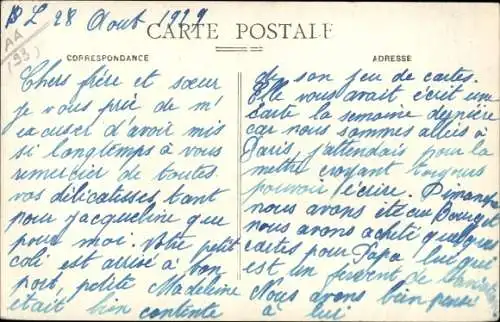 BL 28 Aout 1929
AA
(93)
CARTE POSTALE
CORRESPONDANCE
ADRESSE
Chers frère et sœur
je vous prie de m'
excuser d'avoir mis
si longtemps à vous
remercier de toutes
vos délicatesses, tant
pour Jacqueline que
pour moi. Votre petit
coli est arrivé à bon
port, petite Madeleine
était bien contente
de son jeu de cartes.
Elle vous avait écrit une
carte la semaine dernière
car nous sommes allées à
Paris j'attendais pour la
mettre croyant toujours
pouvoir l'écrire. Dimanche
nous avons été au Bourget
nous avons acheté quelques
cartes pour Papa lui qui
est un fervent de
Nous avons bien pensé
à lui